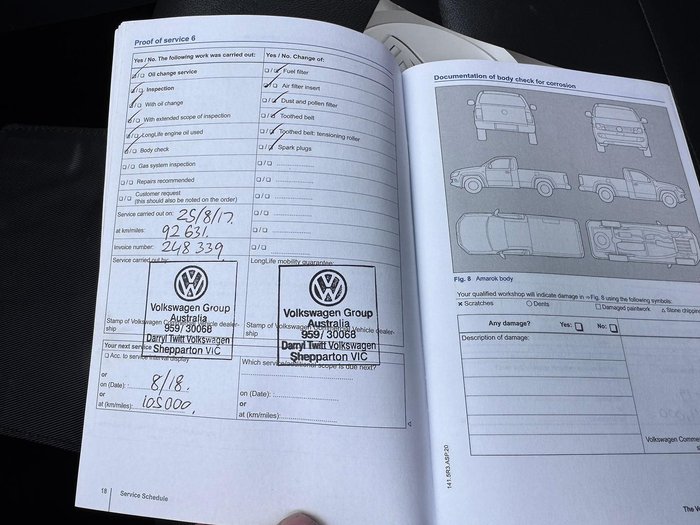 Proof of service 6
Yes / No. The following work was carried out:
Oil change service
Inspection
With oil change
With extended scope of inspection
LongLife engine oil used
Body check
Gas system inspection
Repairs recommended
Customer request
(this should also be noted on the order)
Service carried out on: 25/8/17.
at km/miles: 92 631.
Invoice number: 248 339
Service carried out by:
VW
Volkswagen Group
Australia
959 / 30068
Darryl Twitt Volkswagen
Shepparton VIC
Stamp of Volkswagen Commercial Vehicle dealer-
ship
Your next service
Acc. to service interval display
or
on (Date): 8/18.
or
at (km/miles): 105000.
Yes / No. Change of:
Fuel filter
Air filter insert
Dust and pollen filter
Toothed belt
Toothed belt: tensioning roller
Spark plugs
LongLife mobility guarantee:
VW
Volkswagen Group
Australia
959 / 30068
Darryl Twitt Volkswagen
Shepparton VIC
Stamp of Volkswagen Commercial Vehicle dealer-
ship
Which service/additional scope is due next?
on (Date):
or
at (km/miles):
18 Service Schedule
Documentation of body check for corrosion
Fig. 8 Amarok body
Your qualified workshop will indicate damage in ⇒Fig. 8 using the following symbols:
× Scratches ○ Dents □ Damaged paintwork Stone chipping
Any damage? Yes: No:
Description of damage:
141.5R3.ASP.20
Volkswagen Comme